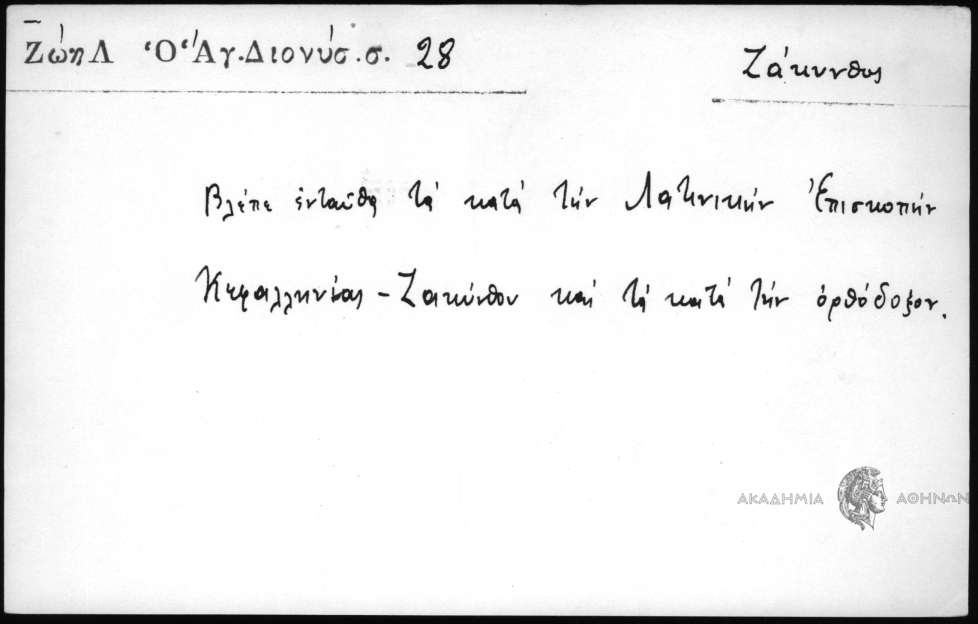 Ζώη Λ Ὁ Ἅγ. Διονύσ. σ. 28
Ζάκυνθος
Βλέπε ἐνταῦθα τὰ κατὰ τὴν Λατινικὴν Ἐπισκοπὴν
Κεφαλληνίας - Ζακύνθου καὶ τὰ κατὰ τὴν ὀρθόδοξον.
ΑΚΑΔΗΜΙΑ ΑΘΗΝΩΝ